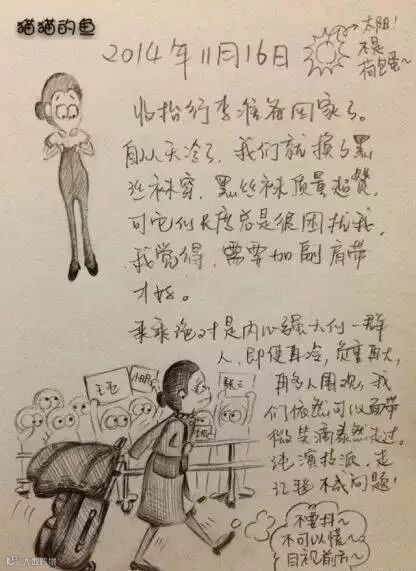 猫猫的鱼
2014年11月16日
太阳!
不是
荷包蛋~
收拾行李准备回家了。
自从天冷了,我们就换上黑
丝袜穿,黑丝袜质量超赞,
可它们长度总是很困扰我,
我觉得,需要加副肩带
才好。
乘乘绝对是内心强大的一群
人,即便再冷,负重再大,
再多人围观,我
们依然可以面带
微笑满泰然走过。
纯演技派,走
红毯不成问题!
王五
小明
张三
不要抖~
不可以慌~
目视前方~